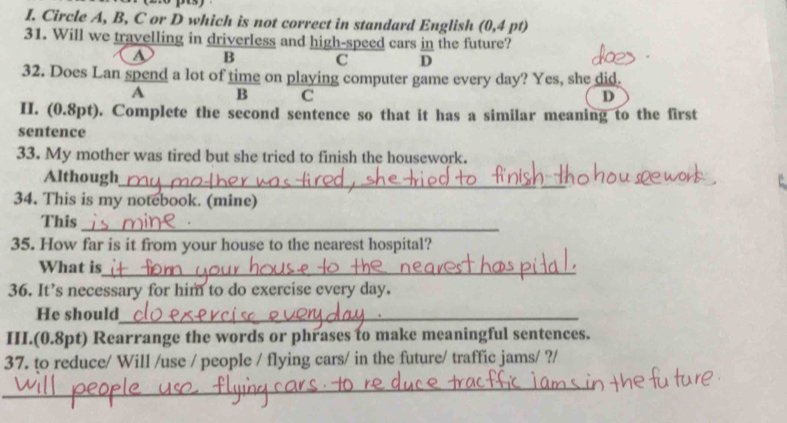 I. Circle A, B, C or D which is not correct in standard English (0,4 pt)
31. Will we travelling in driverless and high-speed cars in the future?
A B C D
does.
32. Does Lan spend a lot of time on playing computer game every day? Yes, she did.
A B C D
II. (0.8pt). Complete the second sentence so that it has a similar meaning to the first
sentence
33. My mother was tired but she tried to finish the housework.
Although my mother was tired, she tried to finish tho houseework.
34. This is my notebook. (mine)
This is mine.
35. How far is it from your house to the nearest hospital?
What is it fom your house to the nearest hospital.
36. It's necessary for him to do exercise every day.
He should do exercise everyday.
III.(0.8pt) Rearrange the words or phrases to make meaningful sentences.
37. to reduce/ Will /use / people / flying cars/ in the future/ traffic jams/ ?/
Will people use flying cars. to reduce tracffic jams in the future.